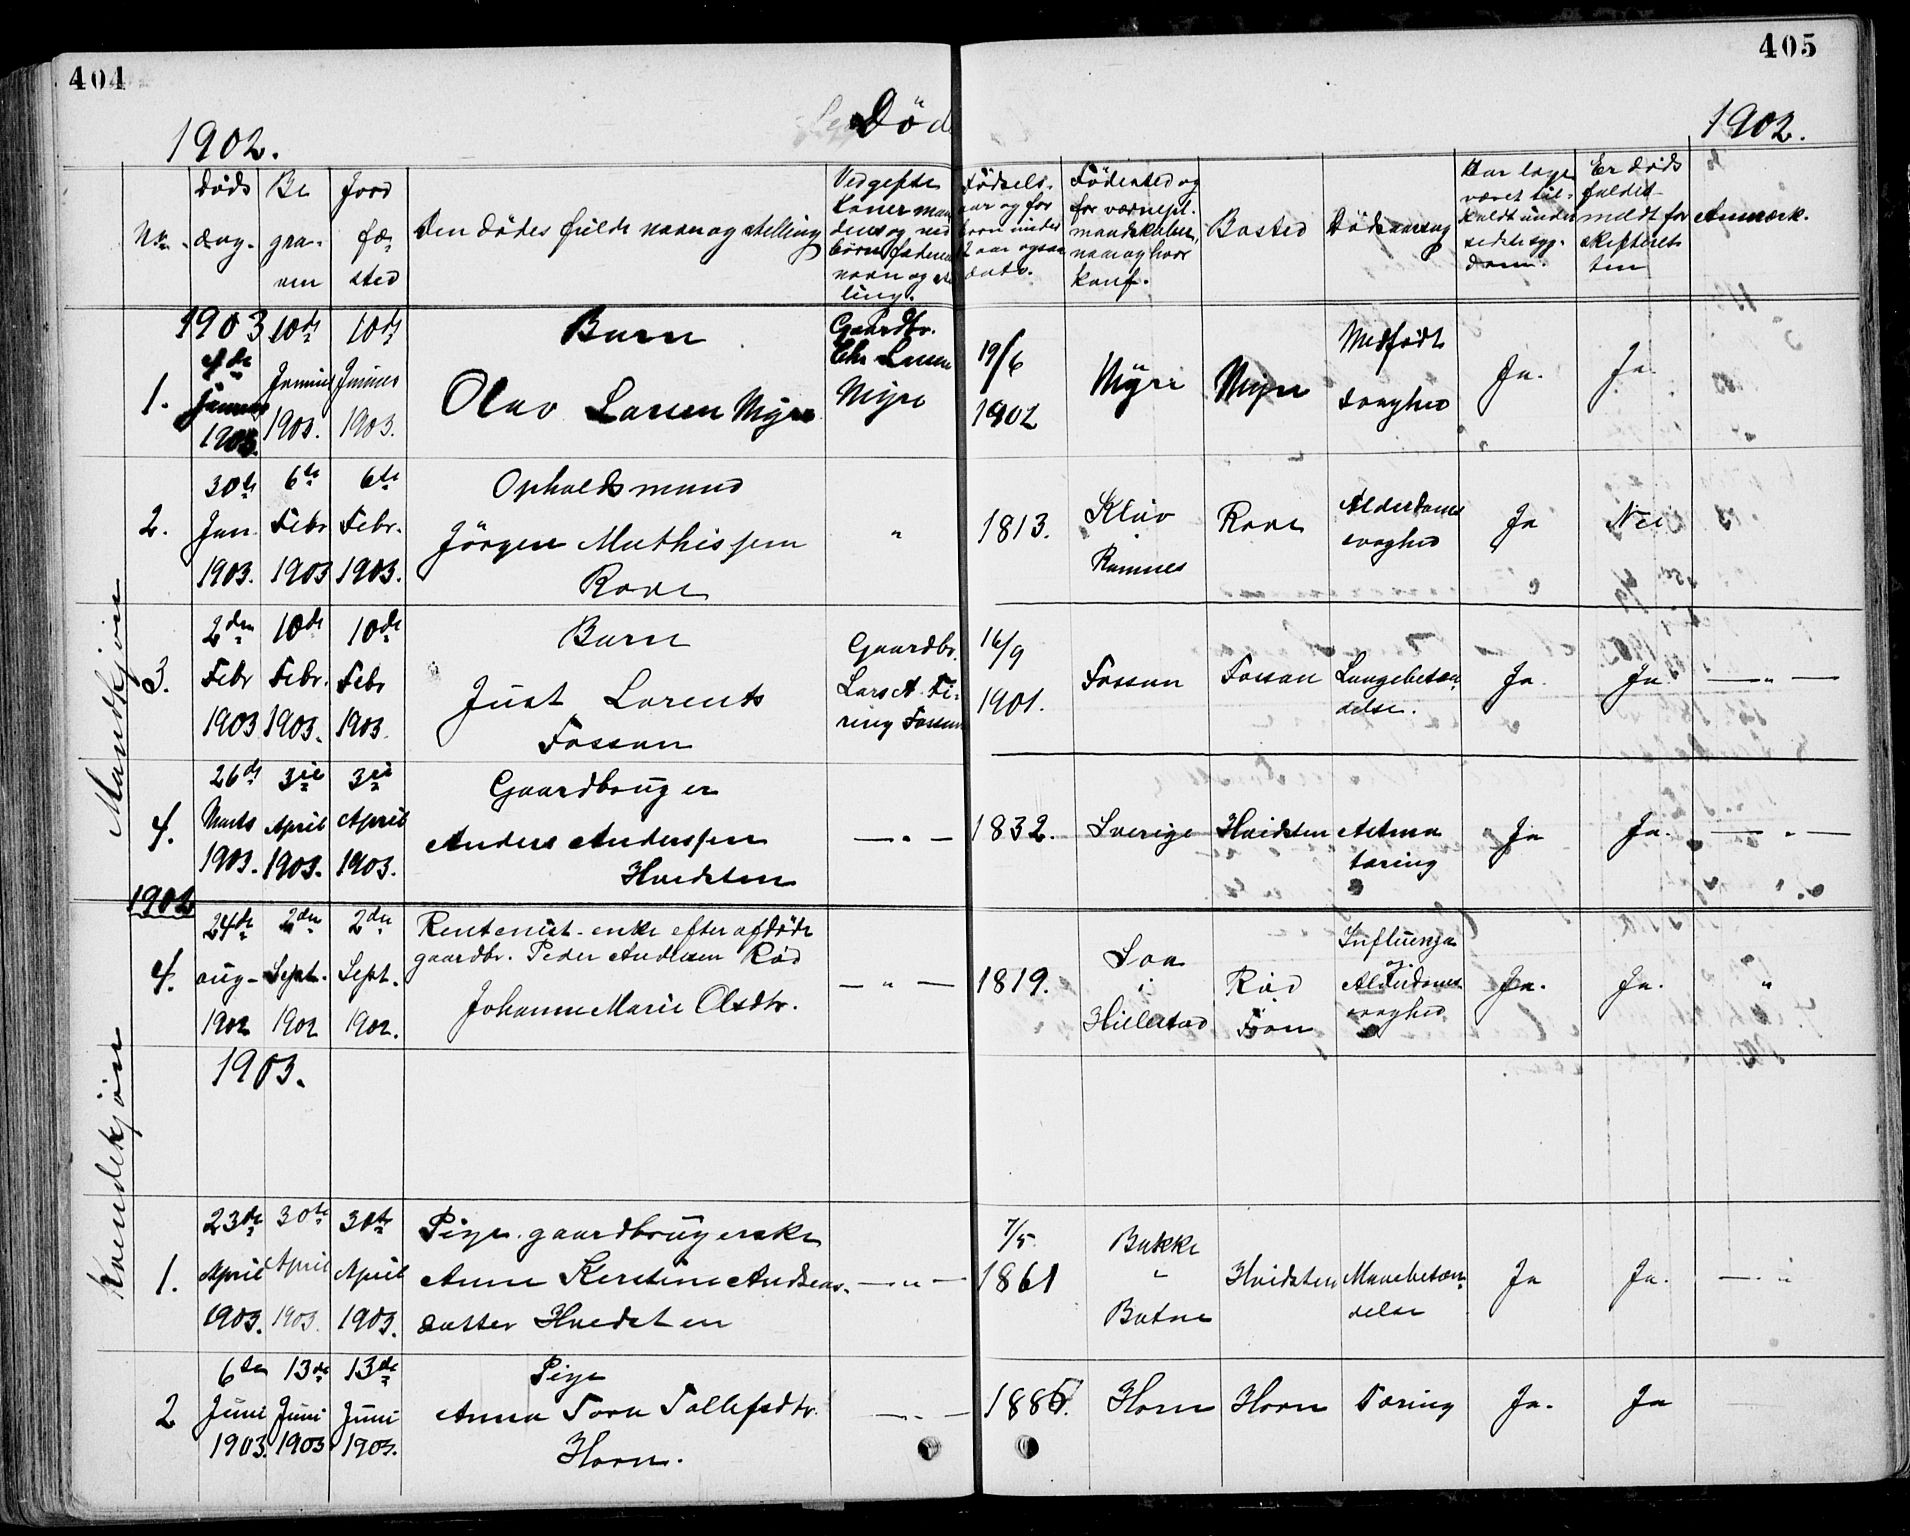 404
405
1902.
Død
1902.
No.
Døds dag.
Be gra- ven
Jord fæ- sted
Den dødes fulde navn og stilling
Ved gifte Koner mandens og ved børn faderens navn og stilling.
Fødsels- aar og for børn under 2 aar ogsaa dato.
Fødested og for værnepl. mandskaber, navn og hvor konf.
Bosted
Dødsaarsag
Har læge været til- kaldt under sidste syg- dom.
Er døds faldet meldt for skifteret- ten
Anmærk.
Mandkjøn
1903
1.
4de Januar 1903.
10de Januar 1903.
10de Januar 1903.
Barn
Olav Larsen Myre
Gaardbr. Chr Larsen Myre
19/6 1902
Myre
Myre
Medfødt svaghed
Ja.
Ja
2.
30te Jan. 1903.
6te Febr 1903
6te Febr. 1903.
Opholdsmand
Jörgen Mathissen
Rove
"
1813.
Klöv Ramnes
Rove
Alderdoms svaghed
Ja
Nei
3.
2den Febr 1903
10de Febr. 1903.
10de Febr 1903.
Barn
Just Lorents
Fossan
Gaardbr. Lars A. Fi- ring Fossan
16/9 1901.
Fossan
Fossan
Lungebetæn- delse.
Ja
Ja
— " —
4.
26de Marts 1903.
3die April 1903.
3die April 1903.
Gaardbruger
Anders Anderssen
Hvidsten
— " —
1832.
Sverige
Hvidsten
Astma tæring
Ja
Ja.
— " —
Kvindekjøn
1902
4.
24de aug- 1902
2den Sept. 1902
2den Sept. 1902.
Rentenist- enke efter afdöde
gaardbr. Peder Andersen Rød
Johanne Marie Olsdtr.
— " —
1819.
Soa i Hillestad
Rød Fon
Influenza og Alderdoms svaghed
Ja.
Ja.
"
1903.
1.
23de April 1903.
30te April 1903.
30te April 1903.
Pige. gaardbrugerske
Anne Kirstine Anders-
datter Hvidsten
— " —
7/5 1861
Bakke " Botne
Hvidsten
Mavebetæn- delse
Ja
Ja.
— "
2
6te Juni 1903.
13de Juni 1903
13de Juni 1903.
Pige
Anna Tora Tollefsdtr.
Horn.
— " —
1885.
Horn
Horn
Tæring
Ja.
Ja